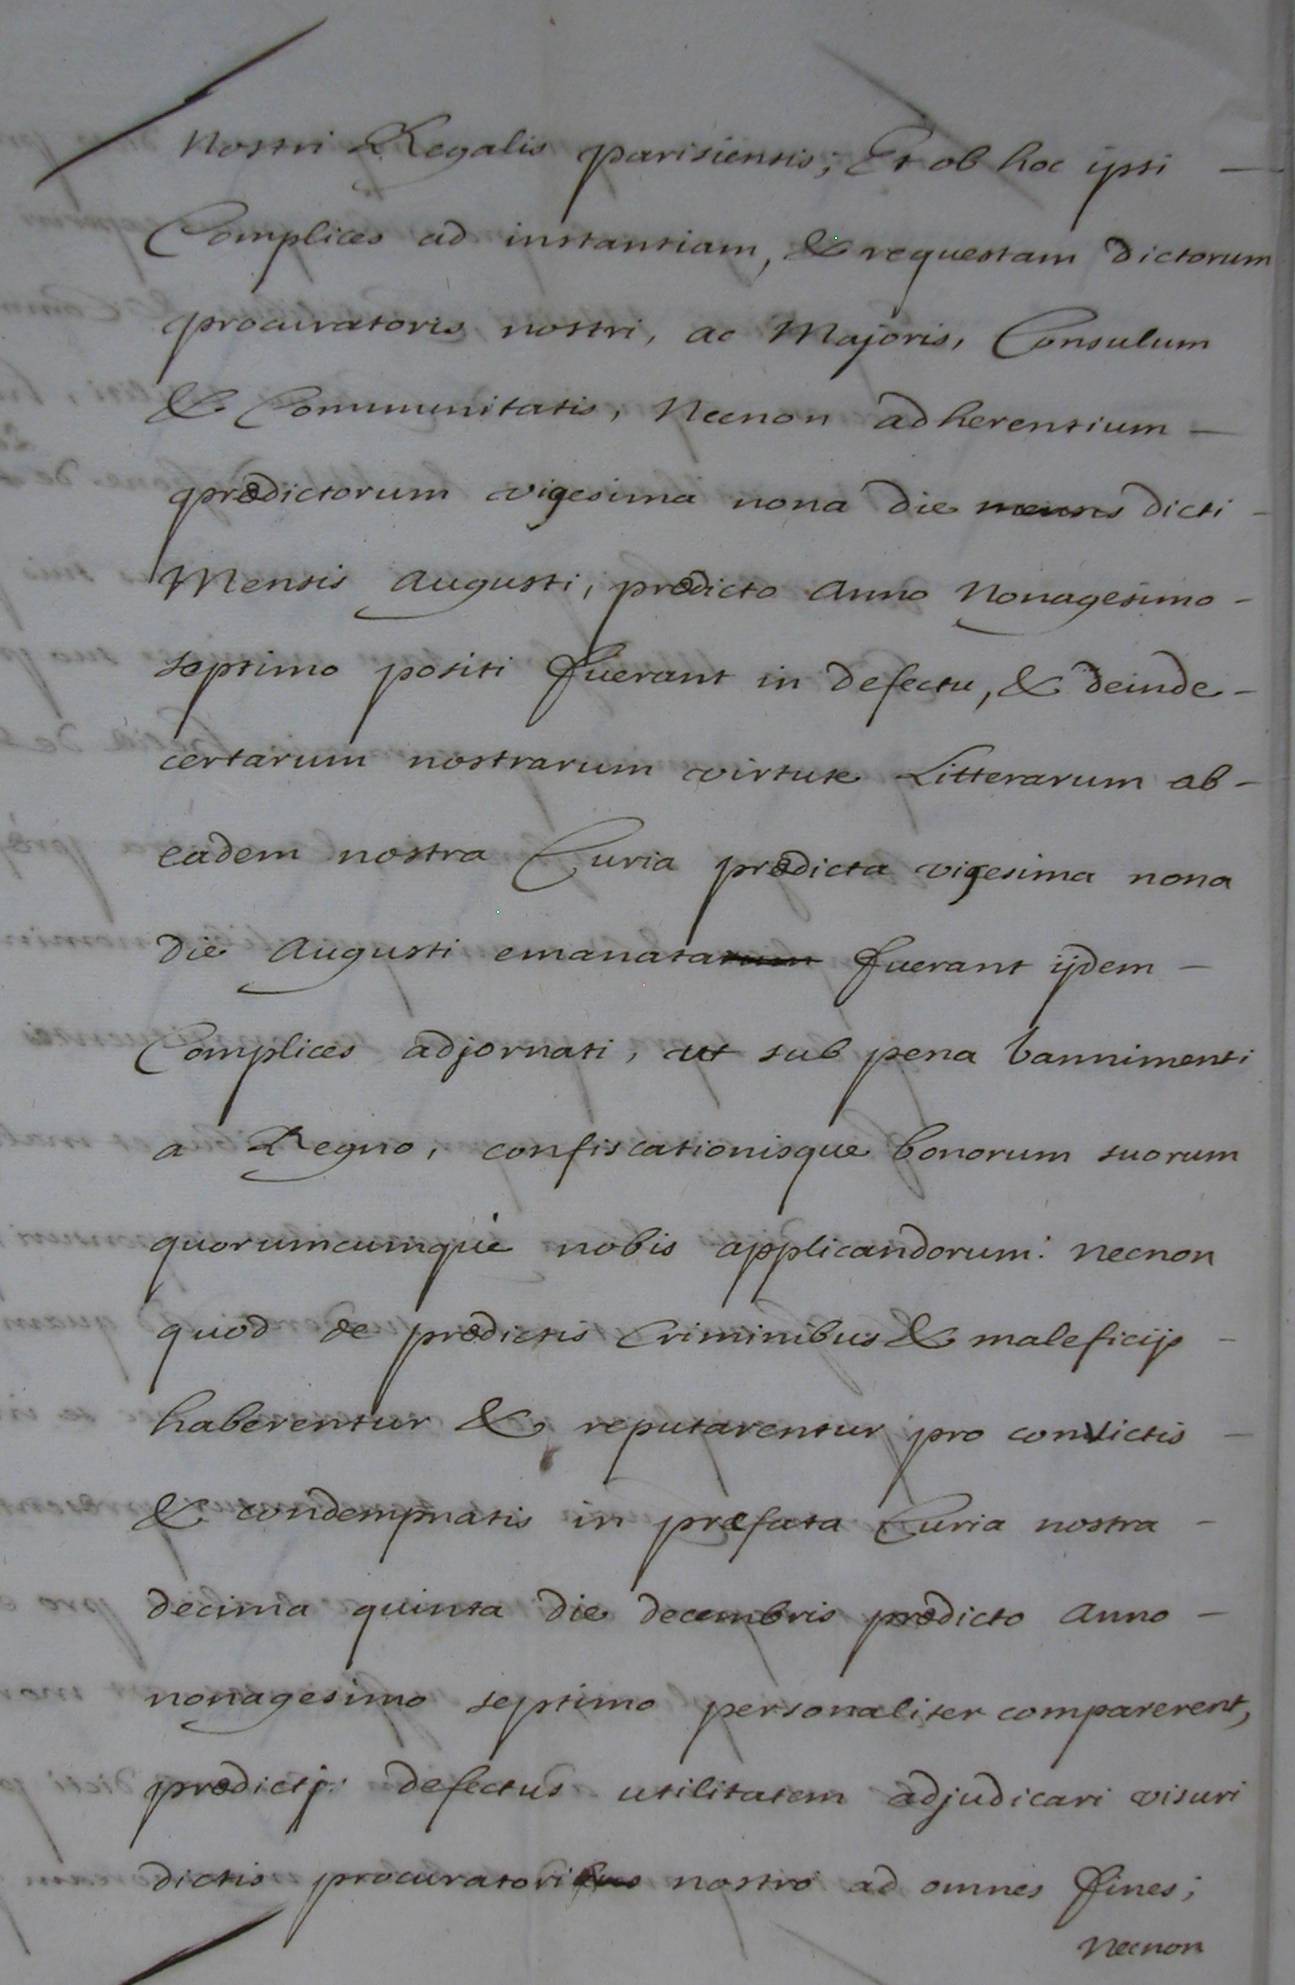 Nostri Regalis parisiensis; Et ob hoc ipsi —
Complices ad instantiam, & requestam dictorum
procuratoris nostri, ac Majoris, Consulum
& Communitatis, Necnon adherentium —
prædictorum vigesima nona die mensis dicti -
Mensis Augusti, prædicto Anno Nonagesimo -
septimo positi fuerant in defectu, & deinde -
certarum nostrarum virtute Litterarum ab -
eadem nostra Curia prædicta vigesima nona
die Augusti emanatarum fuerant ijdem —
Complices adjornati, ut sub pena bannimenti
a Regno, confiscationisque bonorum suorum
quorumcumque nobis applicandorum: necnon
quod de prædictis Criminibus & maleficijs -
haberentur & reputarentur pro convictis —
& condempnatis in præfata Curia nostra -
decima quinta die decembris prædicto Anno —
nonagesimo septimo personaliter comparerent,
prædictj: defectus utilitatem adjudicari visuri
dictis procuratoribus nostro ad omnes fines;
Necnon